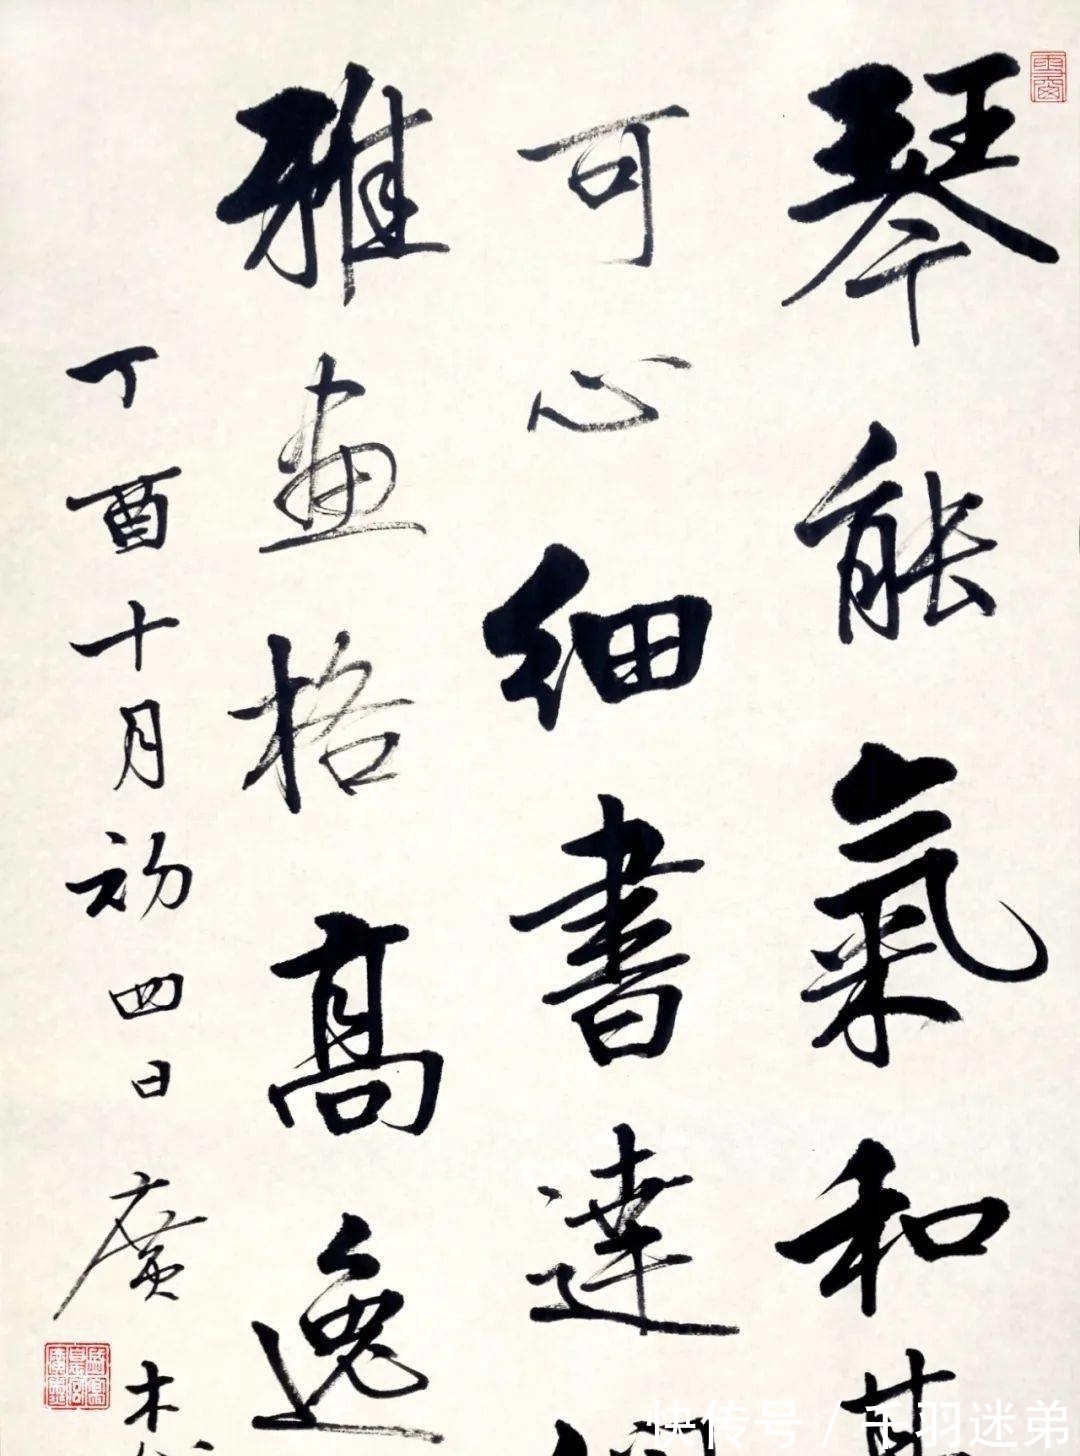 琴能氣和棋
可心細書達儒
雅畫格高逸
丁酉十月初四日廣木
快传号 / 千羽迷弟